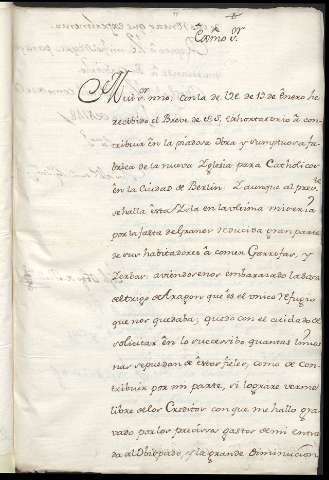 Exmo Sr.
Mui Sr. mio, con la de VE de 13 de Enero he
recibido el Breve de S.S. exhortatorio à con
tribuir ên la piadosa Obra y sumptuosa fa
brica de la nueva Yglesia para Catholicos
ên la Ciudad de Berlin. Y aunque al prest.e
se halla êsta Ysla en la ultima miseria
por la falta de granos reducida gran parte
de sus habitadores à comer Garrofas, y
Yerbas, aviendosenos embarazado la saca
del trigo de Aragon que ês el unico refugio
que nos quedaba; quedo con el cuidado de
solicitar ên lo succesivo quantas limos
nas se puedan de êstos fieles, como de con
tribuir por mi parte, si lograre verme
libre de los Creditos con que me hallo gra
vado por los precisos gastos de mi entra
da al Obispado, y la grande diminucion